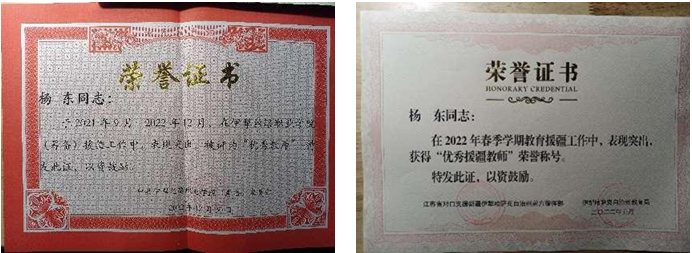 荣誉证书
杨 东同志：
2021年9月 2022年12月，在伊犁
工作中，表现突出，被评为“优秀教师”
发此证，以资鼓励。
2022年12月
荣誉证书
HONORARY CREDENTIAL
杨 东同志：
在2022年春季学期教育援疆工作中，表现突出，
获得“优秀援疆教师”荣誉称号。
特发此证，以资鼓励。
江苏省对口支援新疆伊犁哈萨克自治州前方指挥部 伊犁哈萨克自治州教育局